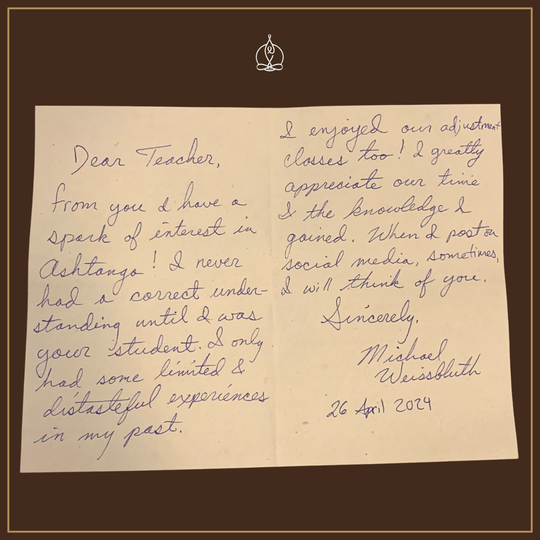 Dear Teacher,
From you I have a
spark of interest in
Ashtanga! I never
had a correct under-
standing until I was
your student. I only
had some limited &
distasteful experiences
in my past.
I enjoyed our adjustment
classes too! I greatly
appreciate our time
& the knowledge I
gained. When I post on
social media, sometimes,
I will think of you.
Sincerely,
Michael
Weissbluth
26 April 2024